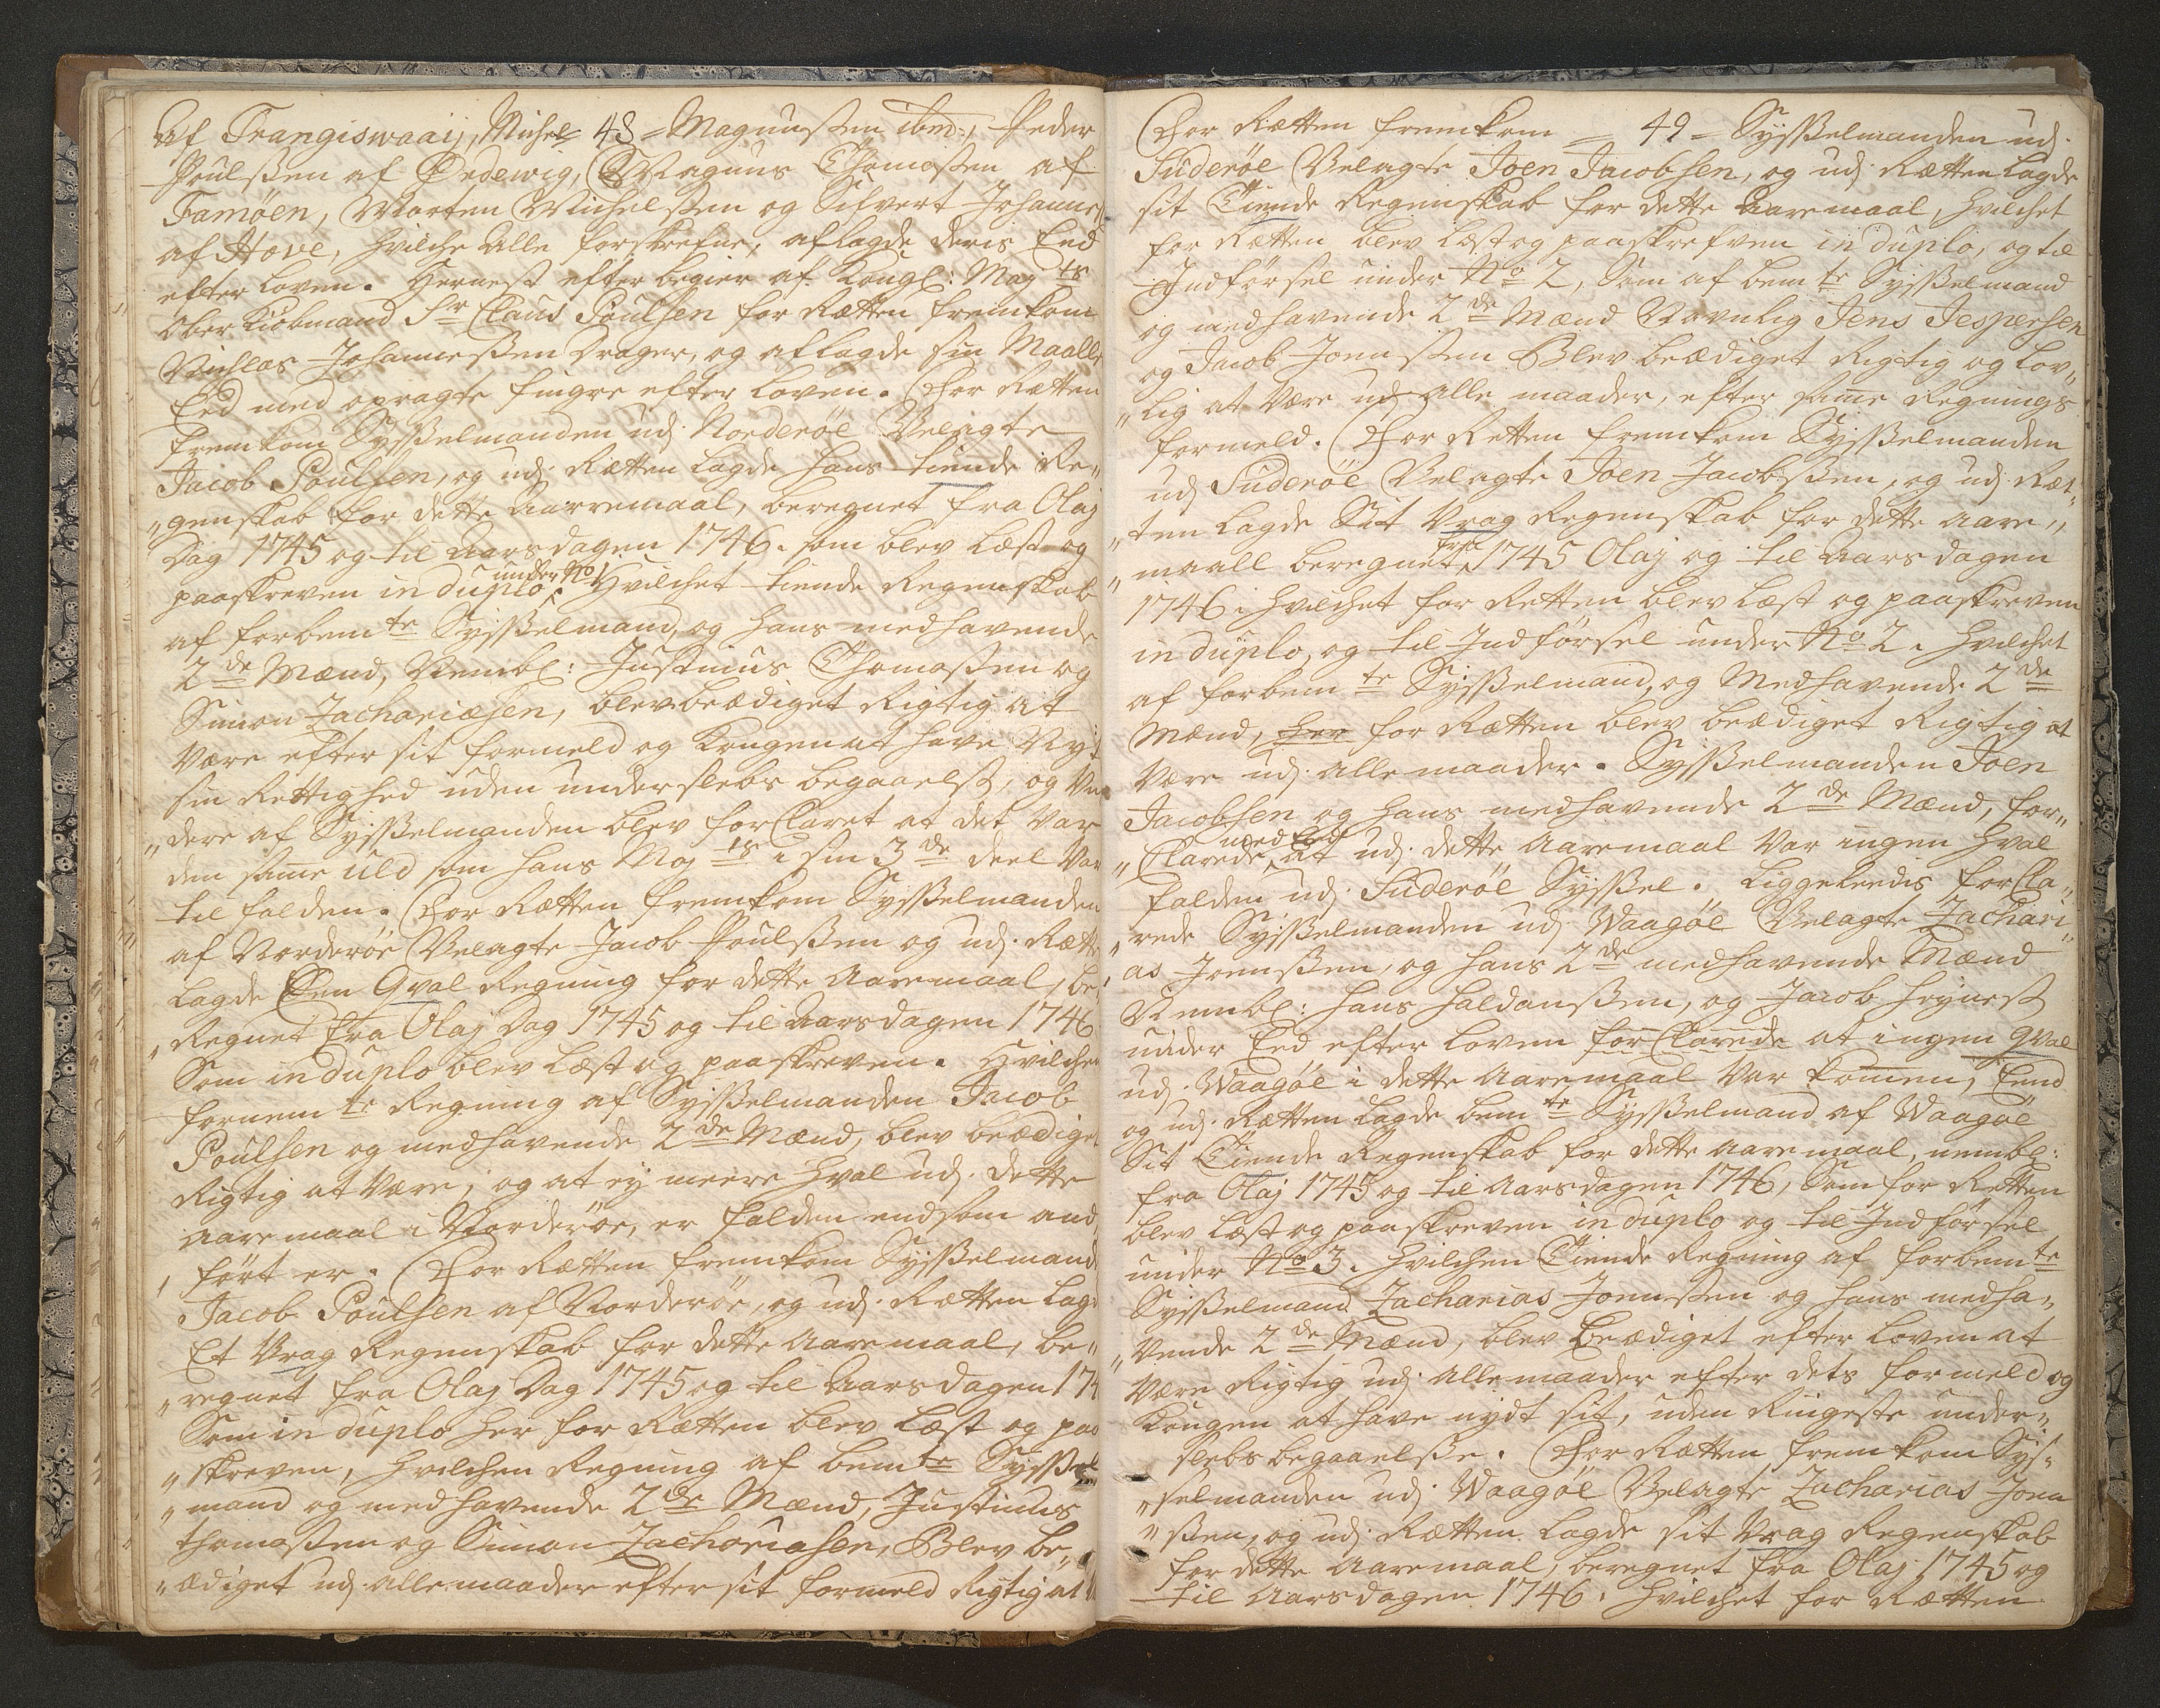 Af Trangiswaaij, Michel 48 Magnussen ibm:, Peder
Poulssen af Ørdewig, Magnus Thomassen af
Famøen, Morten Michelssen og Sifvert Johannes
af Hove, hvilche Alle forskrefne, aflagde deris Eed
efter Loven. Hernest efter begier af Kongl: May ts
Ober Kiøbmand Sr Claus Poulsen for Rætten fremkom
Nichlas Johannessen Drager, og aflagde sin Maalle
Eed med opragte fingre efter Loven. For Rætten
fremkom Sysselmanden udj Norderöe Velagte
Jacob Poulsen, og udj Rætten lagde hans tiende Re„
„genskab for dette Aaremaal, beregnet fra Olaj
Dag 1745 og til Aarsdagen 1746. som blev læst og
paaskreven in duplo under No 1. Hvilchet tiende Regenskab
af forbemte Sysselmand, og hans medhavende
2de Mænd, Nembl: Justinus Thomassen og
Simon Zachariæsen, blev beædiget Rigtig at
være efter sit formeld og Kongen at have Nyt
sin Rettighed uden underslebs begaaelse, og vi
„dere af Sysselmanden blev forClaret at det var
den samme uld som hans Mayts i sin 3de deel var
til falden. For Rætten fremkom Sysselmanden
af Norderöe Velagte Jacob Poulssen og udj Rætte
lagde Een Qval Regning for dette Aaremaal, be„
„Regnet fra Olaj Dag 1745 og til Aarsdagen 1746
Som in duplo blev læst og paaskreven. Hvilchen
fornemte Regning af Sysselmanden Jacob
Poulsen og medhavende 2de Mænd, blev beædiget
Rigtig at være, og at ej meere Hval udj dette
Aaremaal i Norderöe, er falden end som and
„ført er. For Rætten fremkom Sysselmand
Jacob Poulsen af Norderöe, og udj Rætten lagde
Et Vrag Regenskab for dette Aaremaal, be„
„regnet fra Olaj Dag 1745 og til Aarsdagen 174
Som in duplo her for Rætten blev læst og paa
„skreven, hvilchen Regning af bemte Syssel
„mand og med havende 2de Mænd, Justinus
Thomassen og Simon Zachariasen, Blev be„
„ædiget udj alle maader efter sit formeld Rigtig at
For Rætten fremkom 49 Sysselmanden udj
Suderöe Velagte Joen Jacobsen, og udj Rætten lagde
sit Tiende Regenskab for dette Aaremaal, hvilchet
for Rætten blev læst og paaskrefven in duplo, og til
Indførsel under No 2, Som af bemte Sysselmand
og medhavende 2de Mænd Navnlig Jens Jespersen
og Jacob Joenssen Blev beædiget Rigtig og lov„
„lig at være udj alle maader, efter samme Regnings
formeld. For Retten fremkom Sysselmanden
udj Suderöe Velagte Joen Jacobssen, og udj Ræt„
„ten lagde Sit Vrag Regenskab for dette Aare„
„maall beregnet fra 1745 Olaj og til Aarsdagen
1746, hvilchet for Retten blev læst og paaskreven
in duplo, og til Indførsel under No 2. hvilchet
af forbemte Sysselmand, og Medhavende 2de
Mænd, her for Rætten blev beædiget Rigtig at
være udj alle maader. Sysselmanden Joen
Jacobsen og hans medhavende 2de Mænd, for„
„Clarede med Eed at udj dette Aaremaal var ingen Hval
falden udj Suderöe Syssel. Liggeleedis forCla„
„rede Sysselmanden udj Waagöe Velagte Zachari„
„as Joenssen, og hans 2de medhavende Mænd
Nembl: hans haldanssen, og Jacob heynes
under Eed efter loven forClarede at ingen qval
udj Waagöe i dette Aaremaal var komen, Eend
og udj Rætten lagde bemte Sysselmand af Waagöe
Sit Tiende Regenskab for dette Aaremaal, nembl:
fra Olaj 1745 og til Aarsdagen 1746, Som for Retten
blev læst og paaskreven in duplo og til Indførsel
under No 3. Hvilchen Tiende Regning af forbemte
Sysselmand Zacharias Joenssen og hans medha„
„vende 2de Mænd, blev beædiget efter loven at
være Rigtig udj alle maader efter dets formeld og
Kongen at have nydt sit, uden Ringeste under„
slebs begaaelsse. For Rætten fremkom Sys„
„selmanden udj Waagöe Velagte Zacharias Joen
„ssen, og udj Rætten lagde sit Vrag Regenskab
for dette Aaremaal, beregnet fra Olaj 1745 og
til Aarsdagen 1746, hvilchet for Rætten